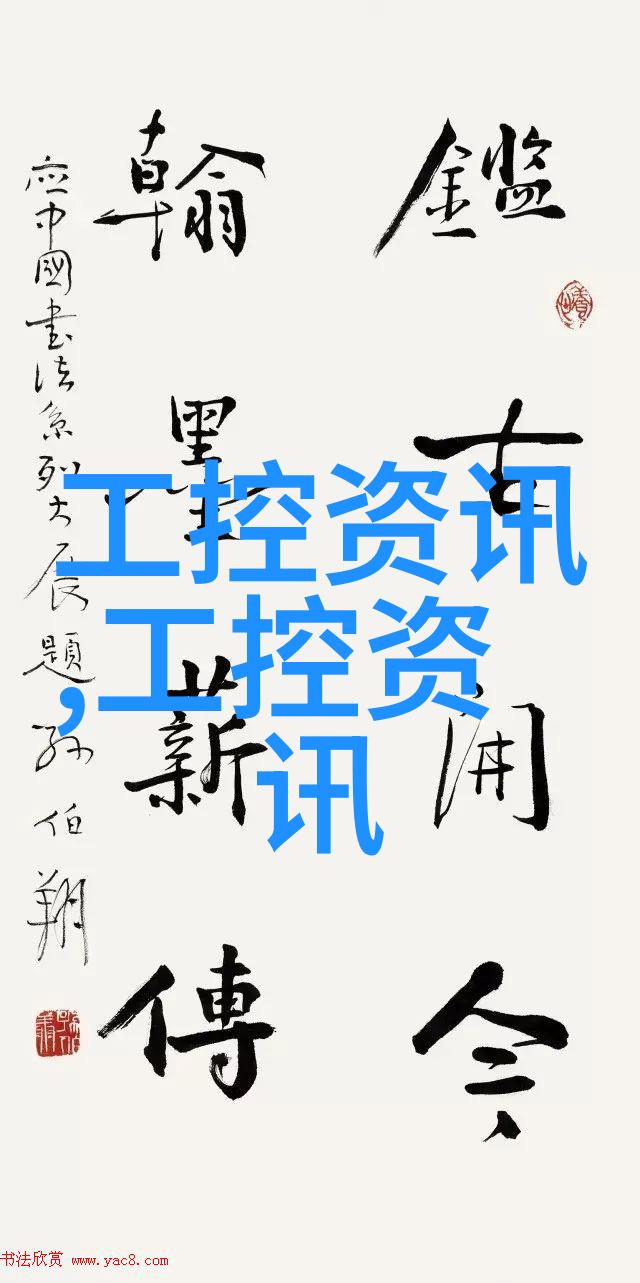 鑑古開今
翰墨薪傳
應中國書法系列大展題孙伯翔
工控资讯
,工控资
讯
书法欣赏 www.yac8.com